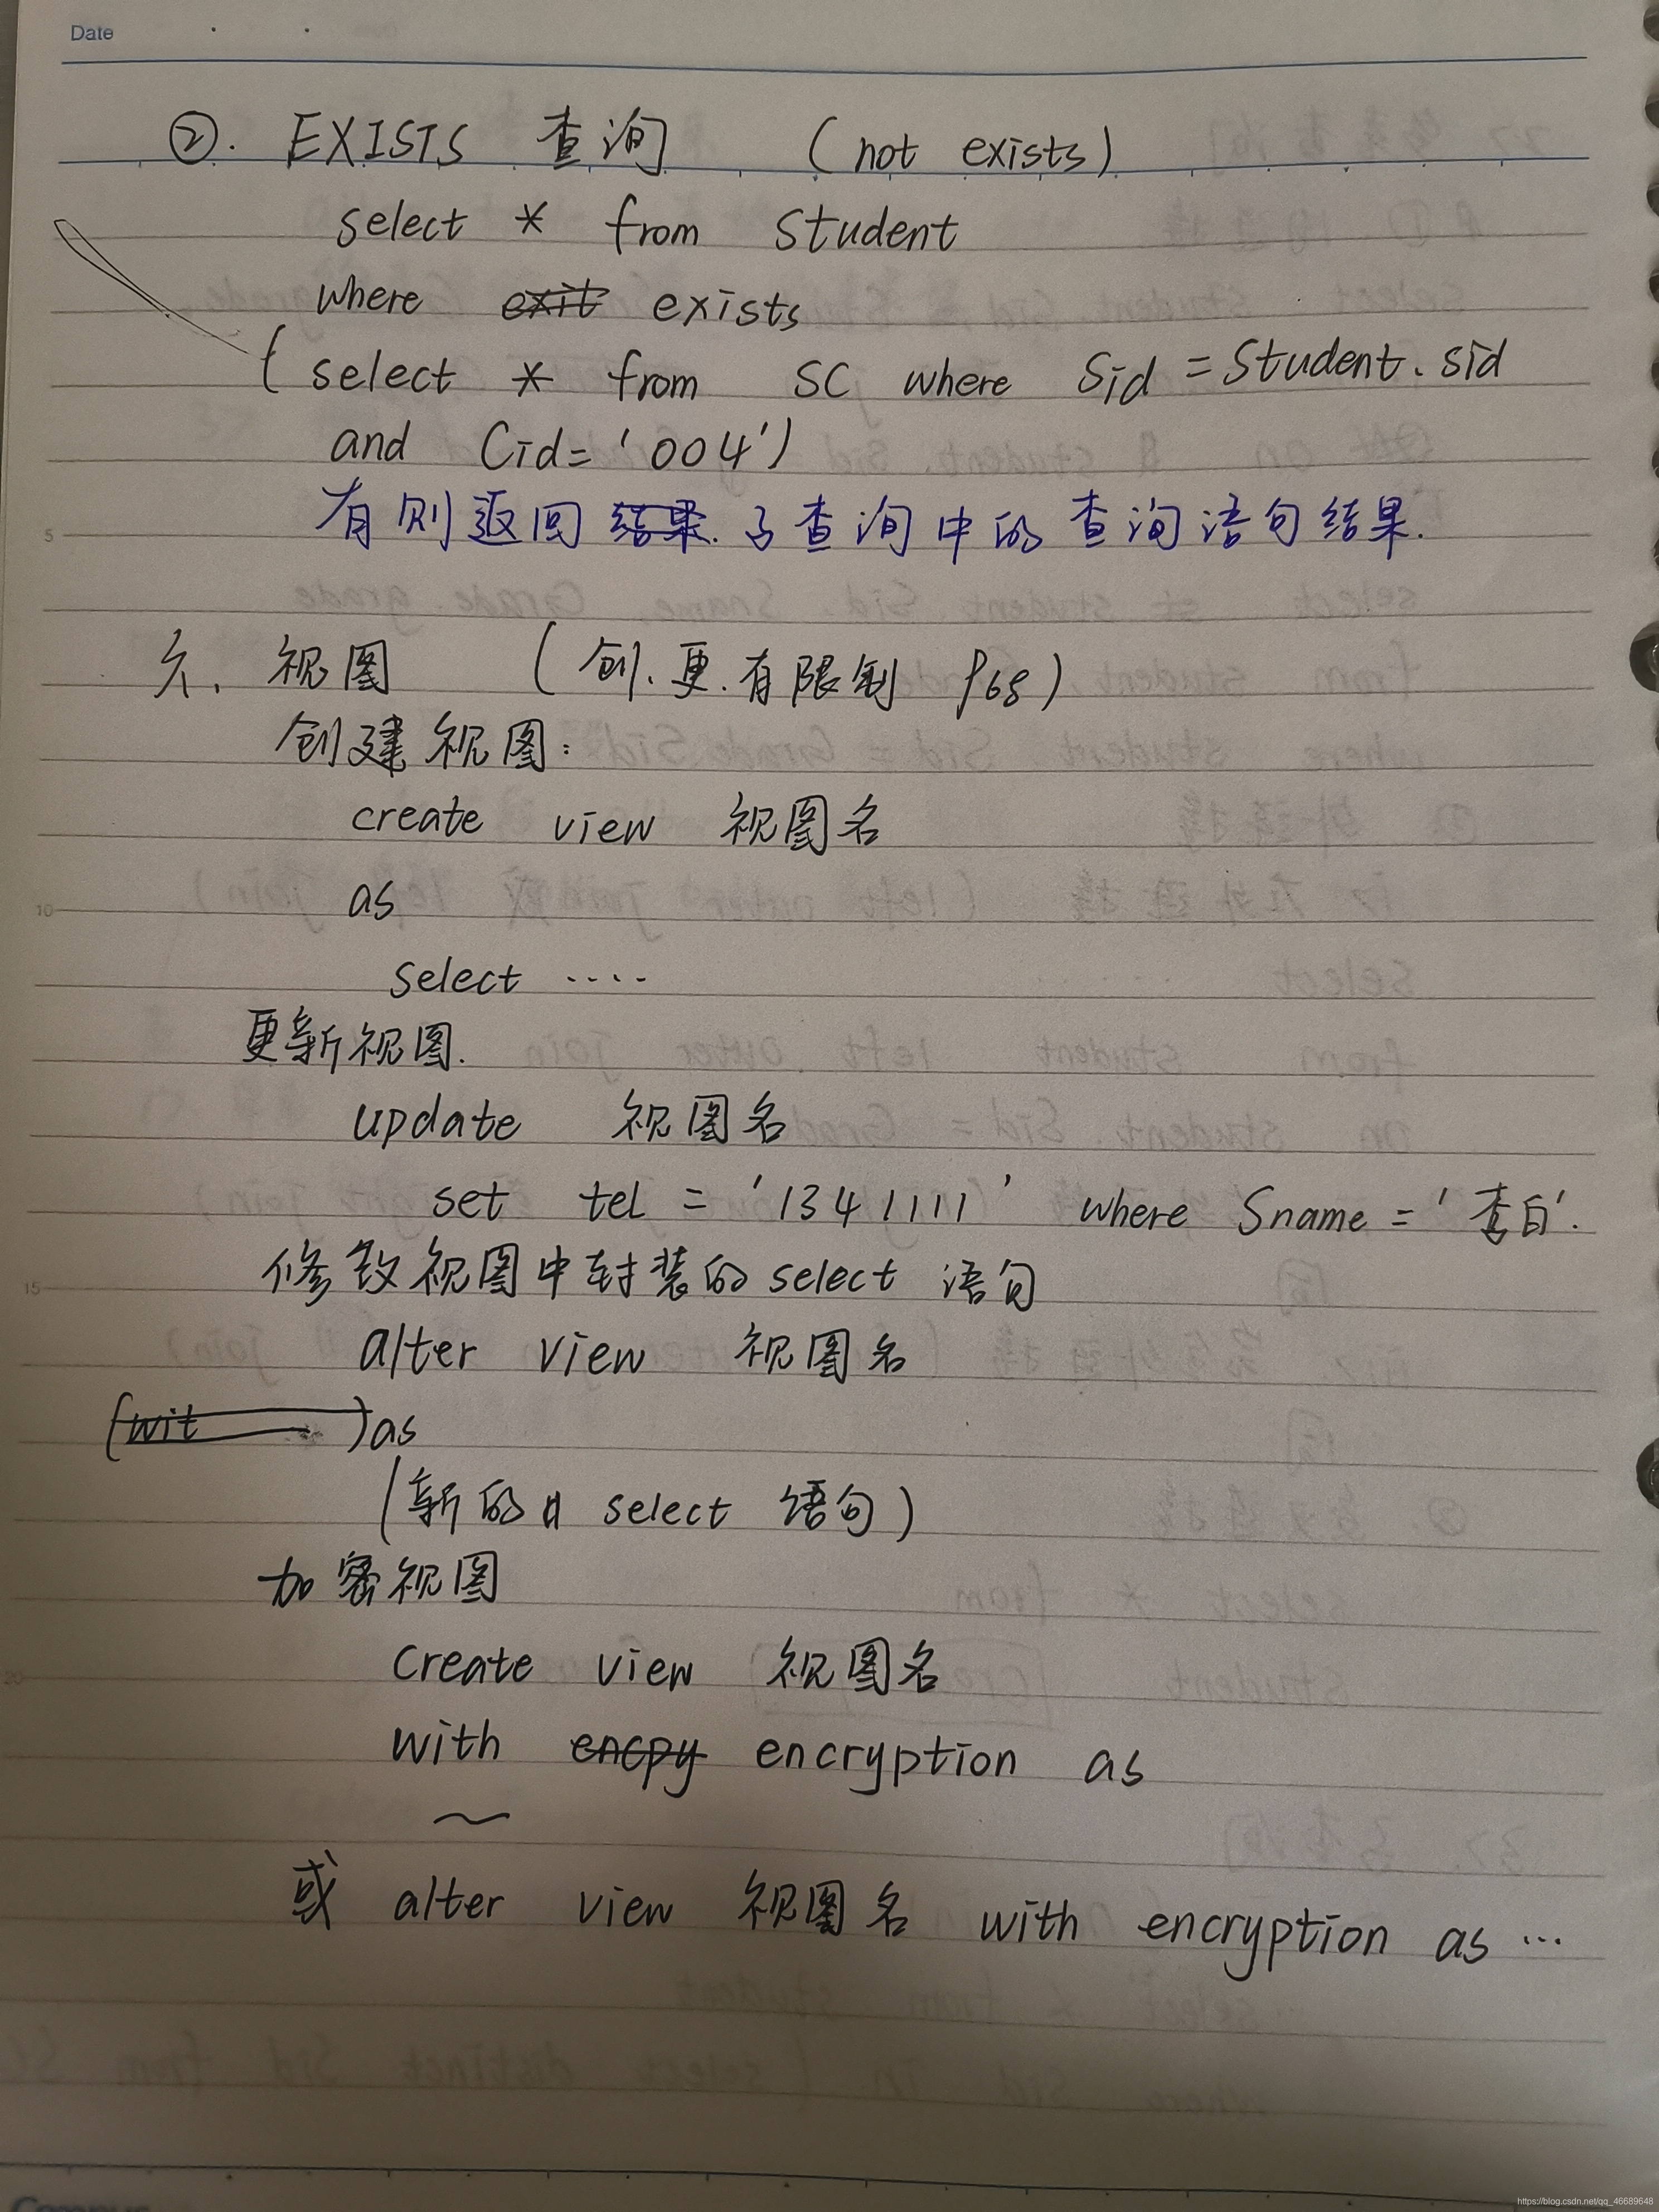 Date
②. EXISTS 查询 (not exists)
select * from Student
where exit exists
(select * from SC where Sid = Student.sid
and Cid='004')
有则返回结果.子查询中的查询语句结果.
六、视图 (创.更.有限制 P68)
创建视图:
create view 视图名
as
select ....
更新视图.
update 视图名
set tel = '1341111' where Sname = '李白'.
修改视图中封装的 select 语句
alter view 视图名
(wit )as
(新的 select 语句)
加密视图
Create view 视图名
with encpy encryption as
~
或 alter view 视图名 with encryption as ...
5
10
15
20
Campus
https://blog.csdn.net/qq_46689648